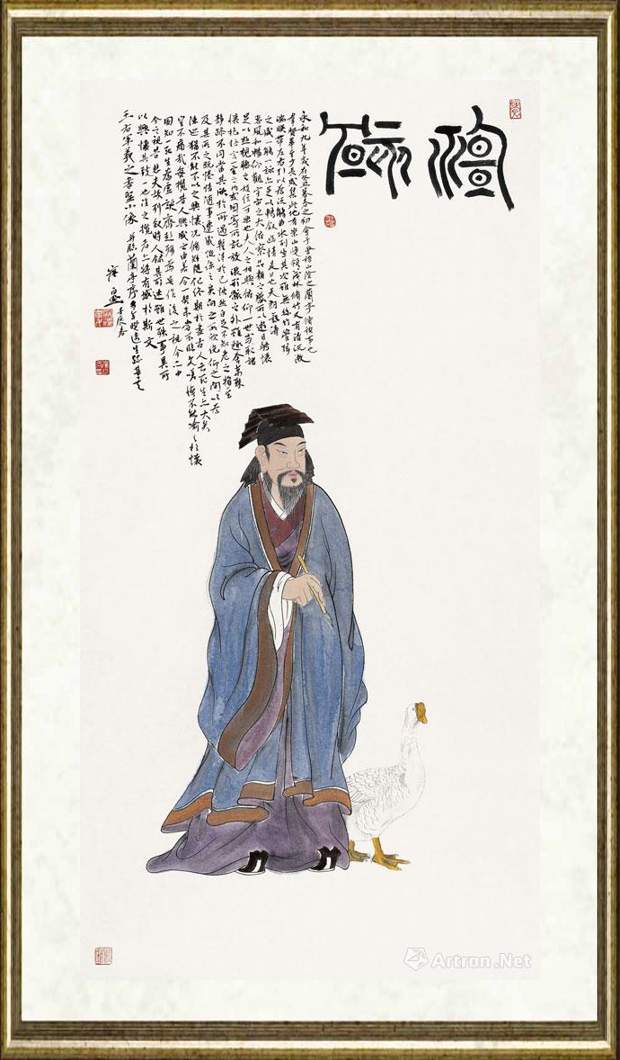 永和九年歲在癸丑暮春之初會于會稽山陰之蘭亭脩禊事也
羣賢畢至少長咸集此地有崇山峻領茂林脩竹又有清流激
湍暎帶左右引以為流觴曲水列坐其次雖無絲竹管弦
之盛一觴一詠亦足以暢敘幽情是日也天朗氣清
惠風和暢仰觀宇宙之大俯察品類之盛所以遊目騁懷
足以極視聽之娛信可樂也夫人之相與俯仰一世或取諸
懷抱悟言一室之內或因寄所託放浪形骸之外雖趣舍萬殊
靜躁不同當其欣於所遇暫得於己怏然自足不知老之將至
及其所之既惓情隨事遷感慨係之矣向之所欣俛仰之間以為
陳迹猶不能不以之興懷況脩短隨化終期於盡古人云死生亦大矣
豈不痛哉每攬昔人興感之由若合一契未嘗不臨文嗟悼不能喻之於懷
固知一死生為虛誕齊彭殤為妄作後之視今亦由
今之視昔悲夫故列敘時人錄其所述雖世殊事異所
以興懷其致一也後之攬者亦將有感於斯文
王右軍羲之書聖小像 并臨蘭亭序
壬辰春
Artron.Net